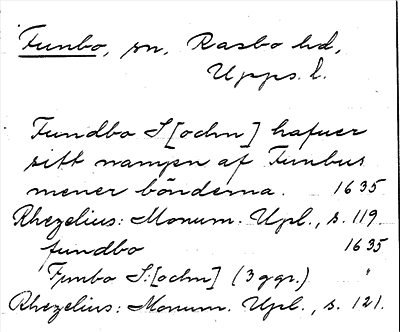 Funbo, sn, Rasbo hd,
Upps. l.
Fundbo S[ochn] hafuer
sitt nampn af Funbus
mener bönderna. 1635
Rhezelius: Monum. Upl., s. 119.
fundbo 1635
Fynbo S:[ochn] (3 ggr.) "
Rhezelius: Monum. Upl., s. 121.